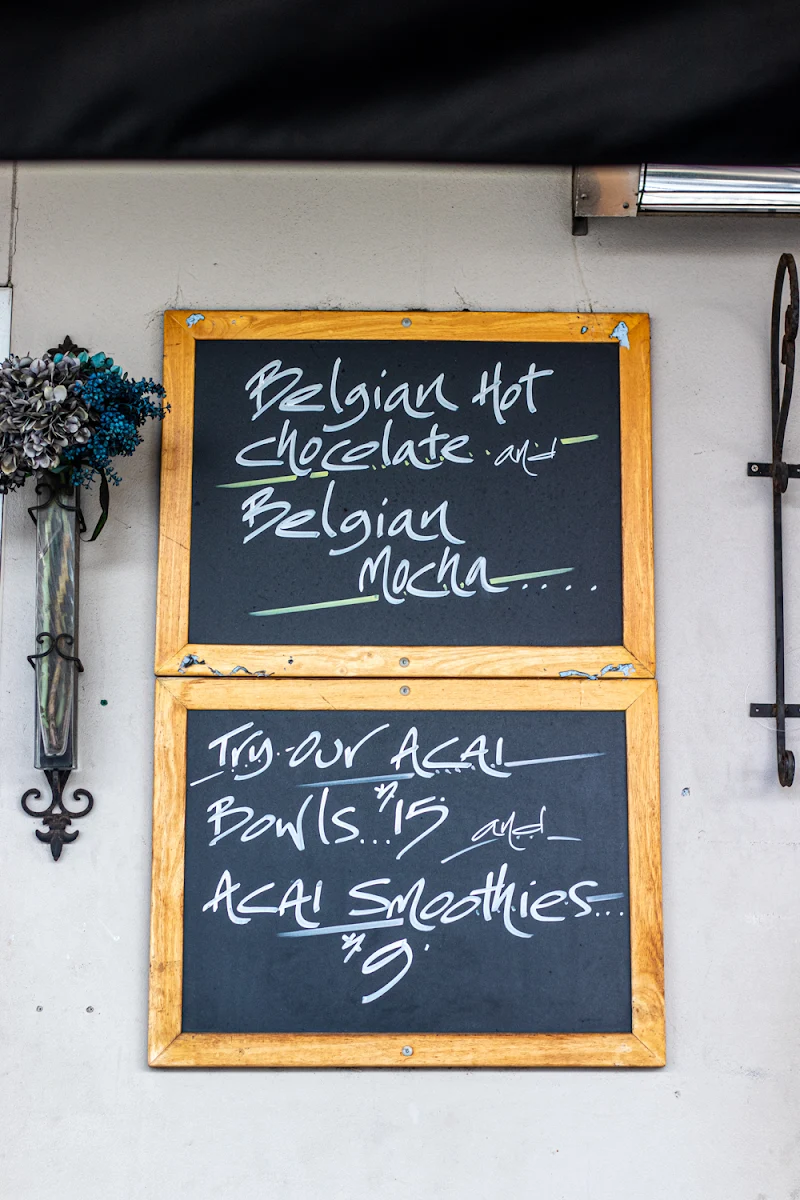 Belgian Hot
chocolate and
Belgian
Mocha.....
Try our ACAI
Bowls...$15 and
ACAI Smoothies...
$9